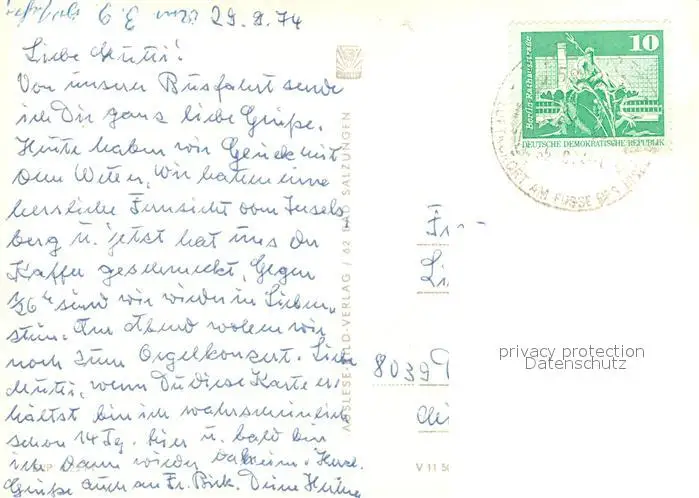 29.8.74
Liebe Mutti!
Von unserer Busfahrt sende
ich Dir ganz liebe Grüße.
Heute haben wir Glück mit
dem Wetter, wir hatten eine
herrliche Fernsicht vom Insels
berg u. jetzt hat uns der
Kaffee geschmeckt. Gegen
1/2 6 h sind wir wieder in Lieben
stein. Am Abend wollen wir
noch zum Orgelkonzert. Liebe
Mutti, wenn Du diese Karte er
hältst bin ich wahrscheinlich
schon 14 Tg. hier u. bald bin
ich dann wieder daheim. Herzl.
Grüße auch an Fr. Birk. Deine
AUSLESE-BILD-VERLAG / 62 BAD SALZUNGEN
V 11 50
10
Berlin-Rathausstraße
DEUTSCHE DEMOKRATISCHE REPUBLIK
AM FUSSE DES
8039
privacy protection
Datenschutz